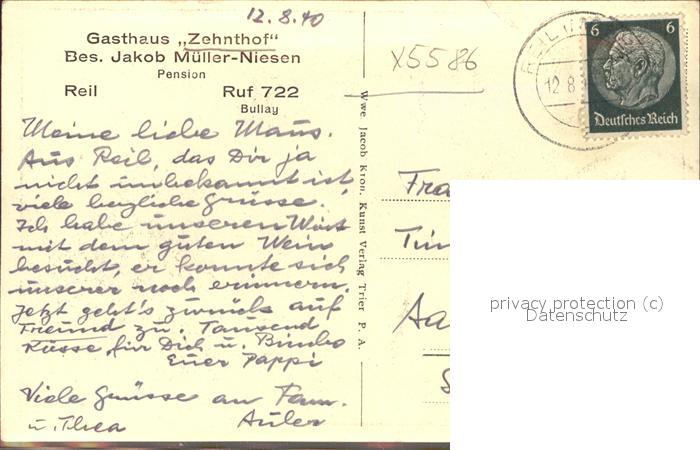 12.8.40
Gasthaus „Zehnthof"
Bes. Jakob Müller-Niesen
Pension
Reil Ruf 722
Bullay
X5586
REIL
12.8.
6 6
Deutsches Reich
Meine liebe Maus.
Aus Reil, das Dir ja
nicht unbekannt ist,
viele herzliche Grüsse.
Ich habe unseren Wirt
mit dem guten Wein
besucht, er konnte sich
unserer noch erinnern.
Jetzt geht's zurück auf
Freund zu. Tausend
Küsse für Dich u. Bimbo
Euer Pappi
Viele Grüsse an Fam.
u. Thea Auler
Wwe. Jacob Kron, Kunst Verlag Trier P. A.
Fra
Aa
privacy protection (c)
Datenschutz